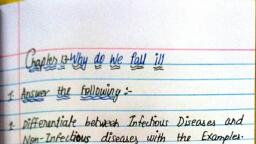 Chapter 13 Why do We fall ill
1. Answer the following :-
1. Differentiate between Infectious Diseases and
Non-Infectious diseases with the Examples.